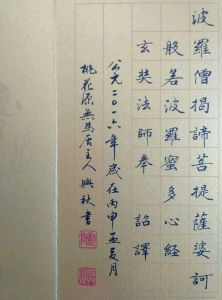 波羅僧揭諦菩提薩婆訶
般若波羅蜜多心經
玄奘法師奉 詔譯
公元二〇一六年歲在丙申孟夏月
桃花源無為居主人興秋書